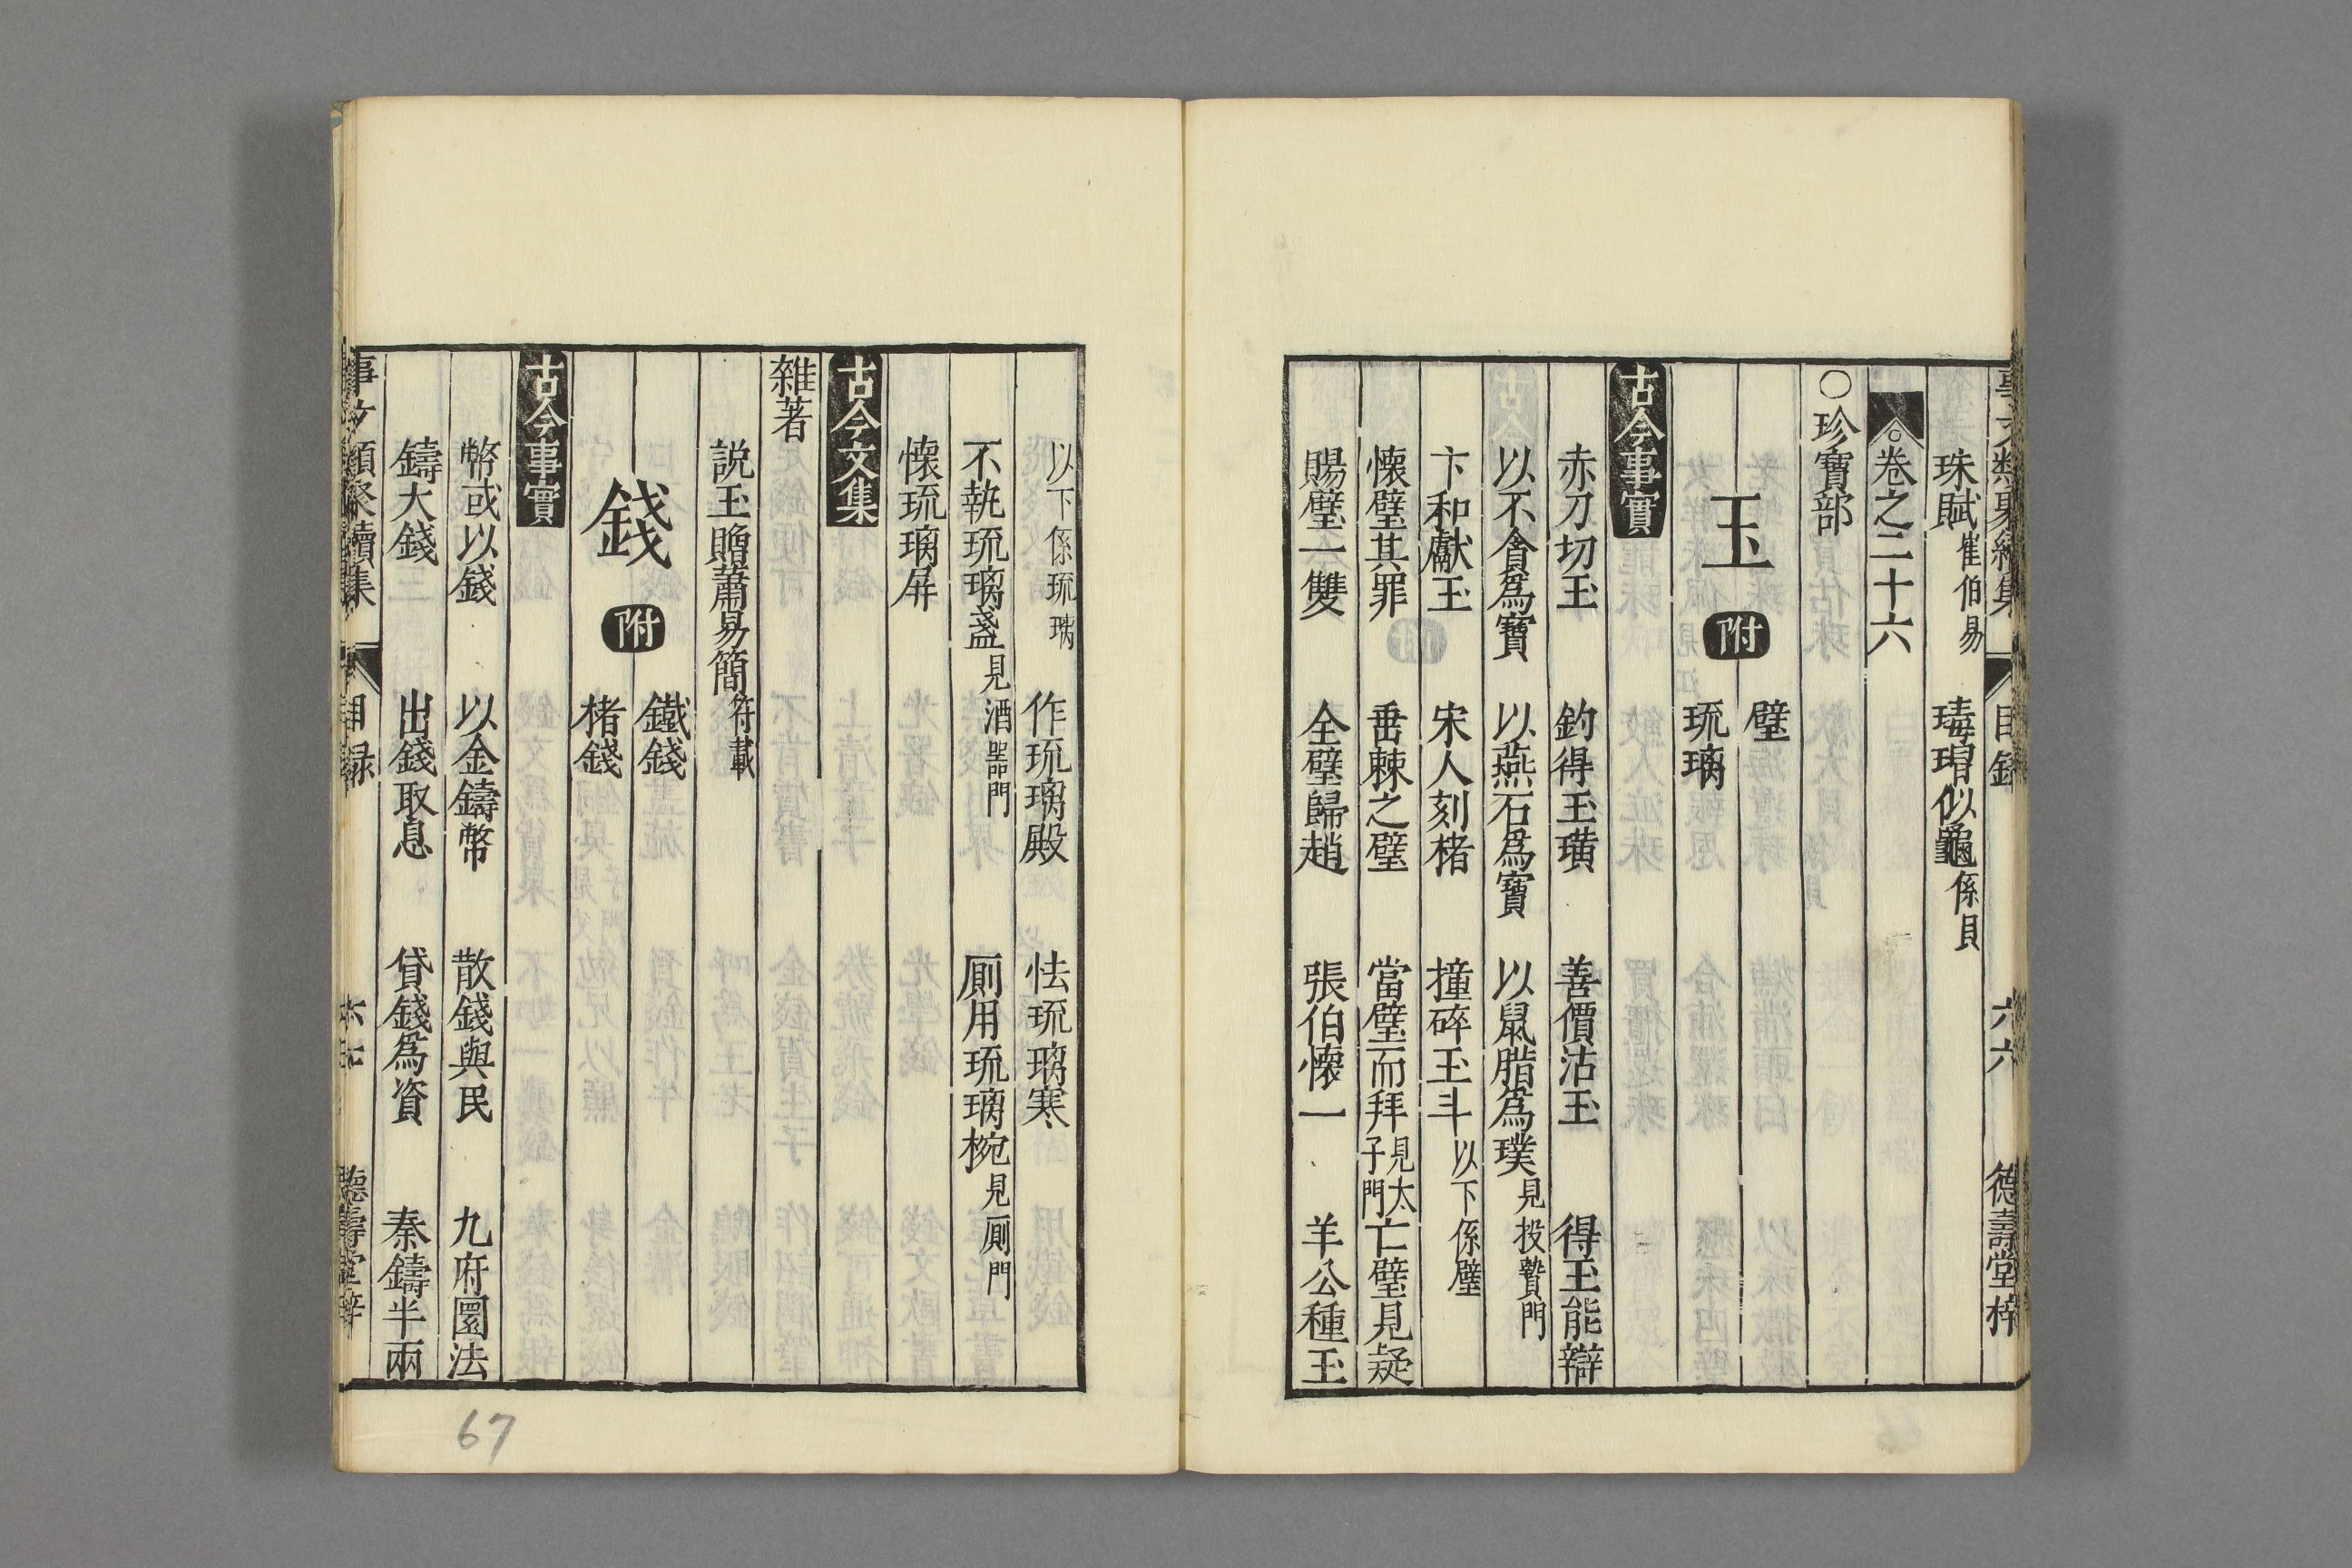 事文類聚續集 目錄 六六 德壽堂梓
珠賦 崔伯易 瑇瑁似龜 係貝
○卷之二十六
○珍寶部
玉 附 璧
琉璃
古今事實
赤刀切玉 釣得玉璜 善價沽玉 得玉能辯
以不貪爲寶 以燕石爲寶 以鼠腊爲璞 見投贄門
卞和獻玉 宋人刻楮 撞碎玉斗 以下係璧
懷璧其罪 垂棘之璧 當璧而拜 見太子門 亡璧見疑
賜璧一雙 全璧歸趙 張伯懷一 羊公種玉
以下係琉璃 作琉璃殿 怯琉璃寒
不執琉璃盞 見酒器門 厠用琉璃椀 見厠門
懷琉璃屏
古今文集
雜著
説玉贈蕭易簡 符載
錢 附 鐵錢
楮錢
古今事實
幣或以錢 以金鑄幣 散錢與民 九府圜法
鑄大錢 出錢取息 貸錢爲資 秦鑄半兩
事文類聚續集 目録 六七 德壽堂梓
67